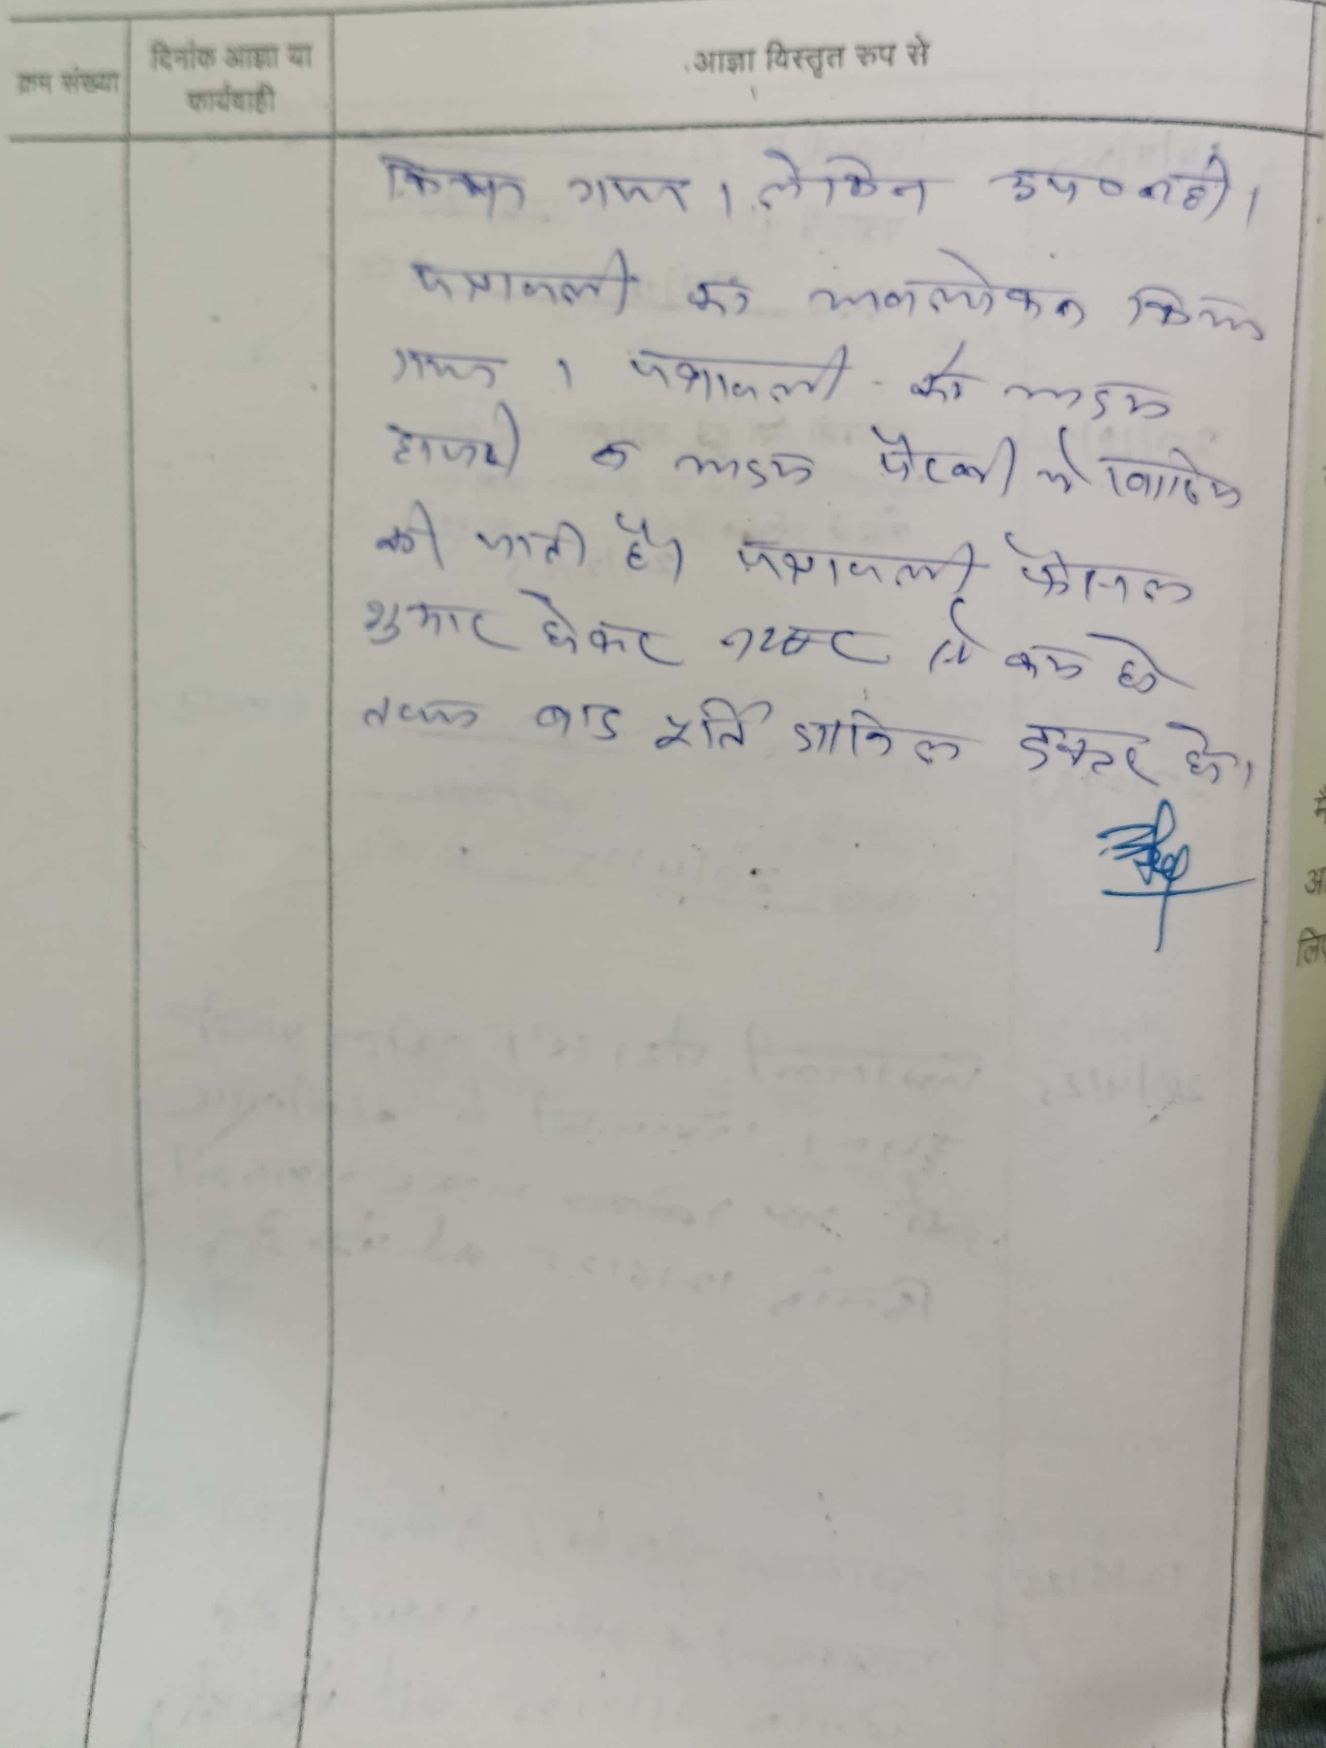 क्रम संख्या
दिनांक आज्ञा या
कार्यवाही
आज्ञा विस्तृत रुप से
किया गया । लेकिन उप० नही ।
पत्रावली का अवलोकन किया
गया । पत्रावली को अदम
हाजरी व अदम पैरवी मे खारिज
की जाती है। पत्रावली फैसल
शुमार होकर नम्बर से कम हो
तथा बाद पूर्ति दाखिल दफ्तर हो।